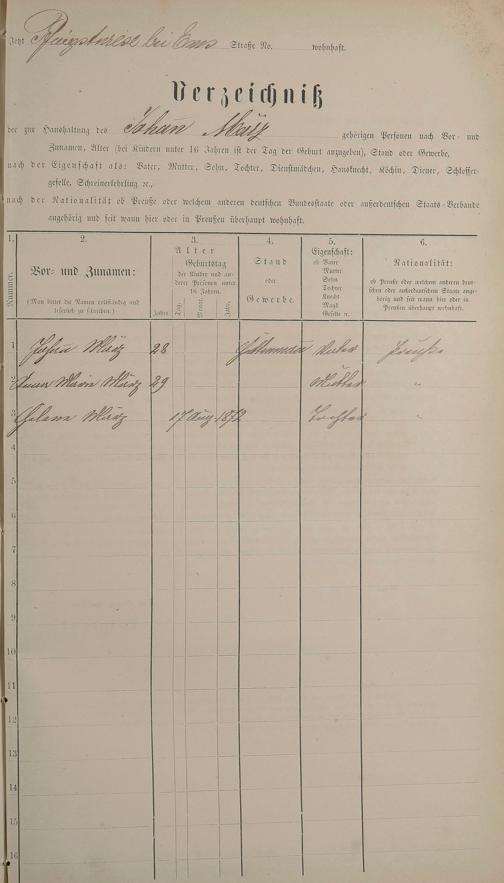 Jetzt Pfingstwiese bei Ems Straße No. wohnhaft.
Verzeichniß
der zur Haushaltung des Johan März gehörigen Personen nach Vor- und
Zunamen, Alter (bei Kindern unter 16 Jahren ist der Tag der Geburt anzugeben), Stand oder Gewerbe,
nach der Eigenschaft als: Vater, Mutter, Sohn, Tochter, Dienstmädchen, Hausknecht, Köchin, Diener, Schlosser-
geselle, Schreinerlehrling ec.,
nach der Nationalität ob Preuße oder welchem anderen deutschen Bundesstaate oder außerdeutschen Staats-Verbande
angehörig und seit wann hier oder in Preußen überhaupt wohnhaft.
1. 2. 3. 4. 5. 6.
Nummer.
Vor- und Zunamen:
(Man bittet die Namen vollständig und
leserlich zu schreiben.)
Alter
Geburtstag
der Kinder und an-
derer Personen unter
16 Jahren.
Jahren Tag. Monat. Jahr.
Stand
oder
Gewerbe.
Eigenschaft:
ob Vater
Mutter
Sohn
Tochter
Knecht
Magd
Geselle ec.
Nationalität:
ob Preuße oder welchem anderen deut-
schen oder außerdeutschen Staate ange-
hörig und seit wann hier oder in
Preußen überhaupt wohnhaft.
1 Johan März 28 Hüttenman Vater Preuße
2 Anna Maria März 29 Mutter "
3 Helena März 17 Aug. 1872 Tochter "
4
5
6
7
8
9
10
11
12
13
14
15
16